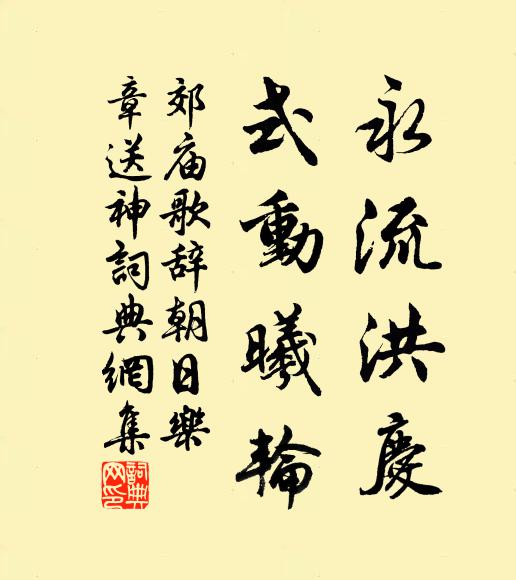 永流洪慶
式動曦輪
郊庙歌辞朝日樂
章送神詞典網集
詞典网印